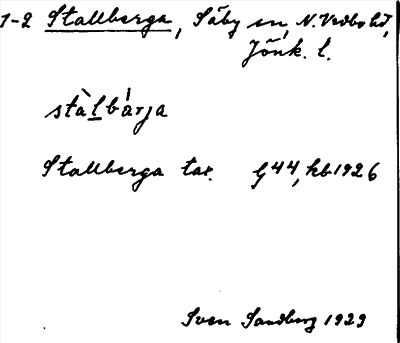 1-2 Stallberga, Säby sn, N. Vedbo hd,
Jönk. l.
stàlbárja
Stallberga tax. G44, hb 1926
Sven Sandberg 1929